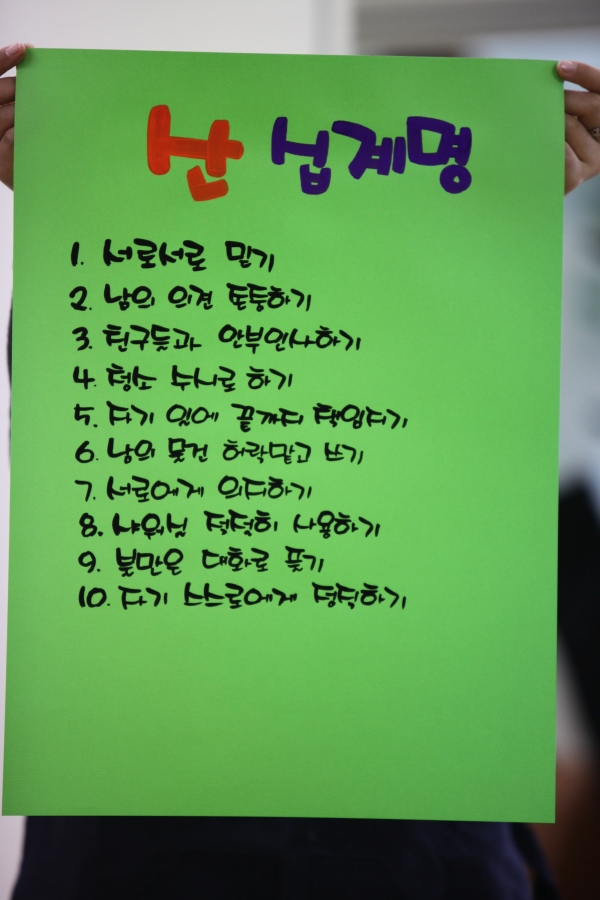 십계명
1. 서로서로 믿기
2. 남의 의견 존중하기
3. 친구들과 안부인사하기
4. 청소 수시로 하기
5. 자기 일에 끝까지 책임지기
6. 남의 물건 허락맡고 쓰기
7. 서로에게 의지하기
8. 샤워실 적절히 사용하기
9. 불만은 대화로 풀기
10. 자기 스스로에게 정직하기